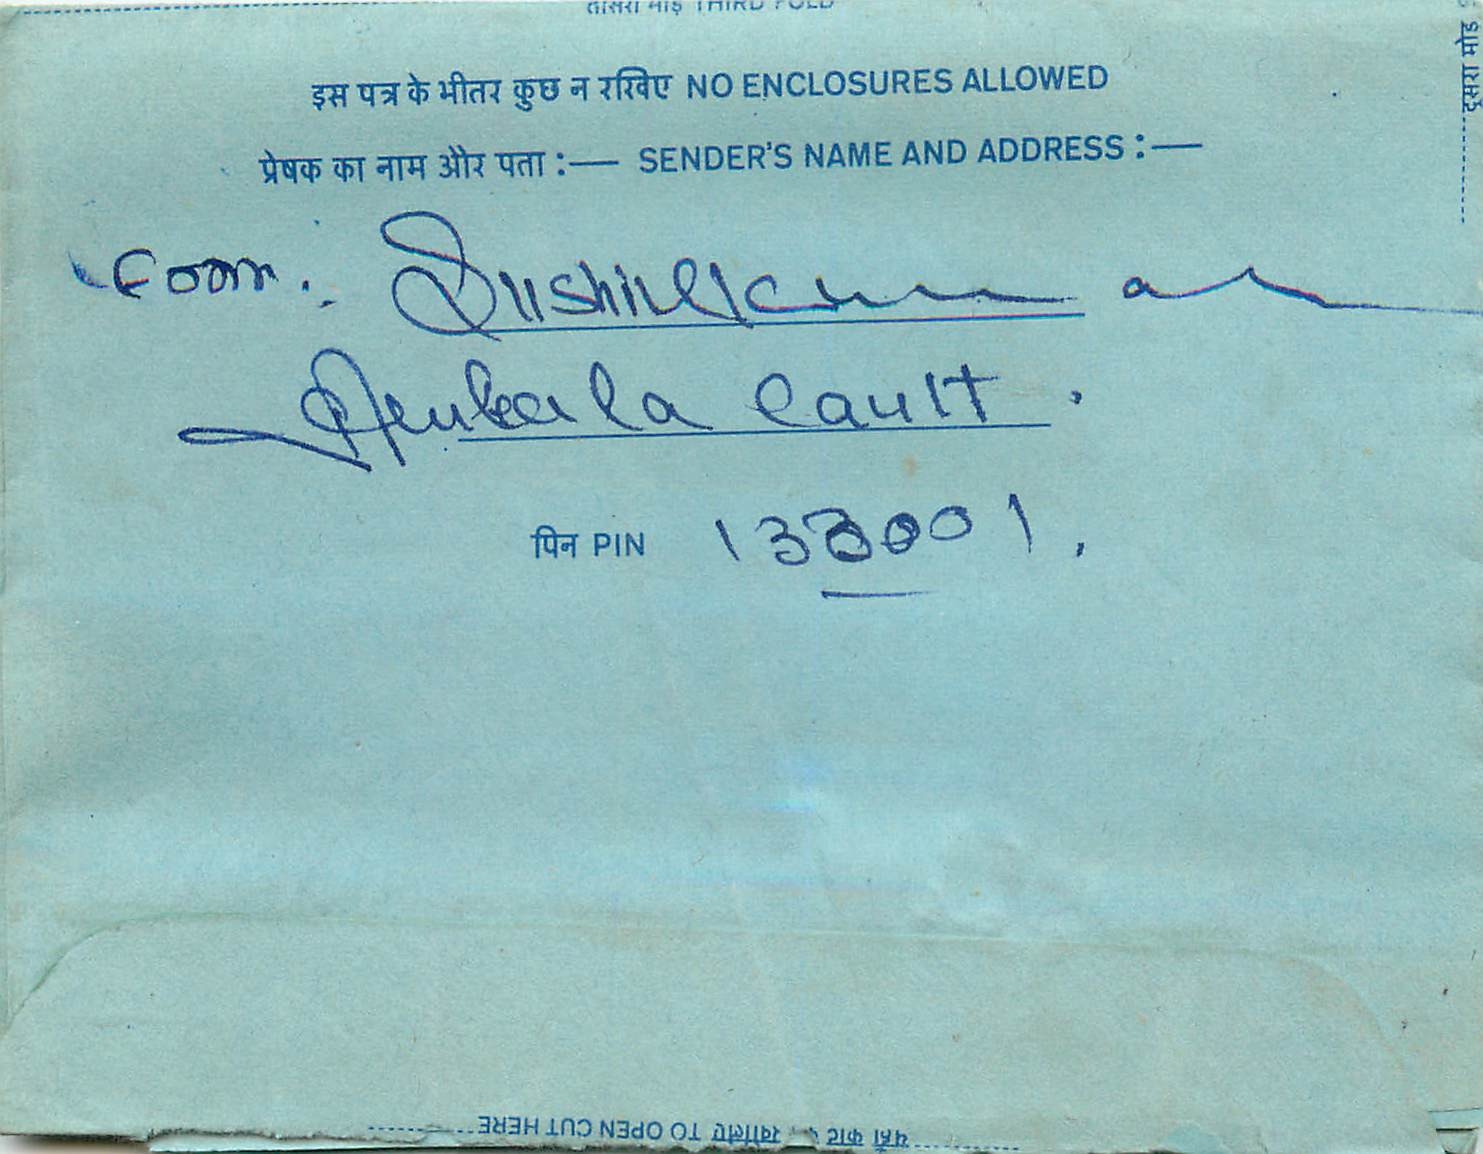 तीसरा मोड़ THIRD FOLD
दूसरा मोड़
इस पत्र के भीतर कुछ न रखिए NO ENCLOSURES ALLOWED
प्रेषक का नाम और पता :— SENDER'S NAME AND ADDRESS :—
From :. Sushil Kumar
Ambala Cantt .
पिन PIN 133001 ,
यहाँ काट कर खोलिए TO OPEN CUT HERE